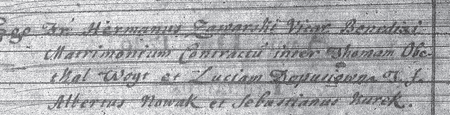 Fr Hermanus Zawarski Vicar Benedixi
Matrimonium Contractū inter Thomam Obe
thal Woyt et Luciam T. f.
Albertus Nowak et Sebastianus Kurek.